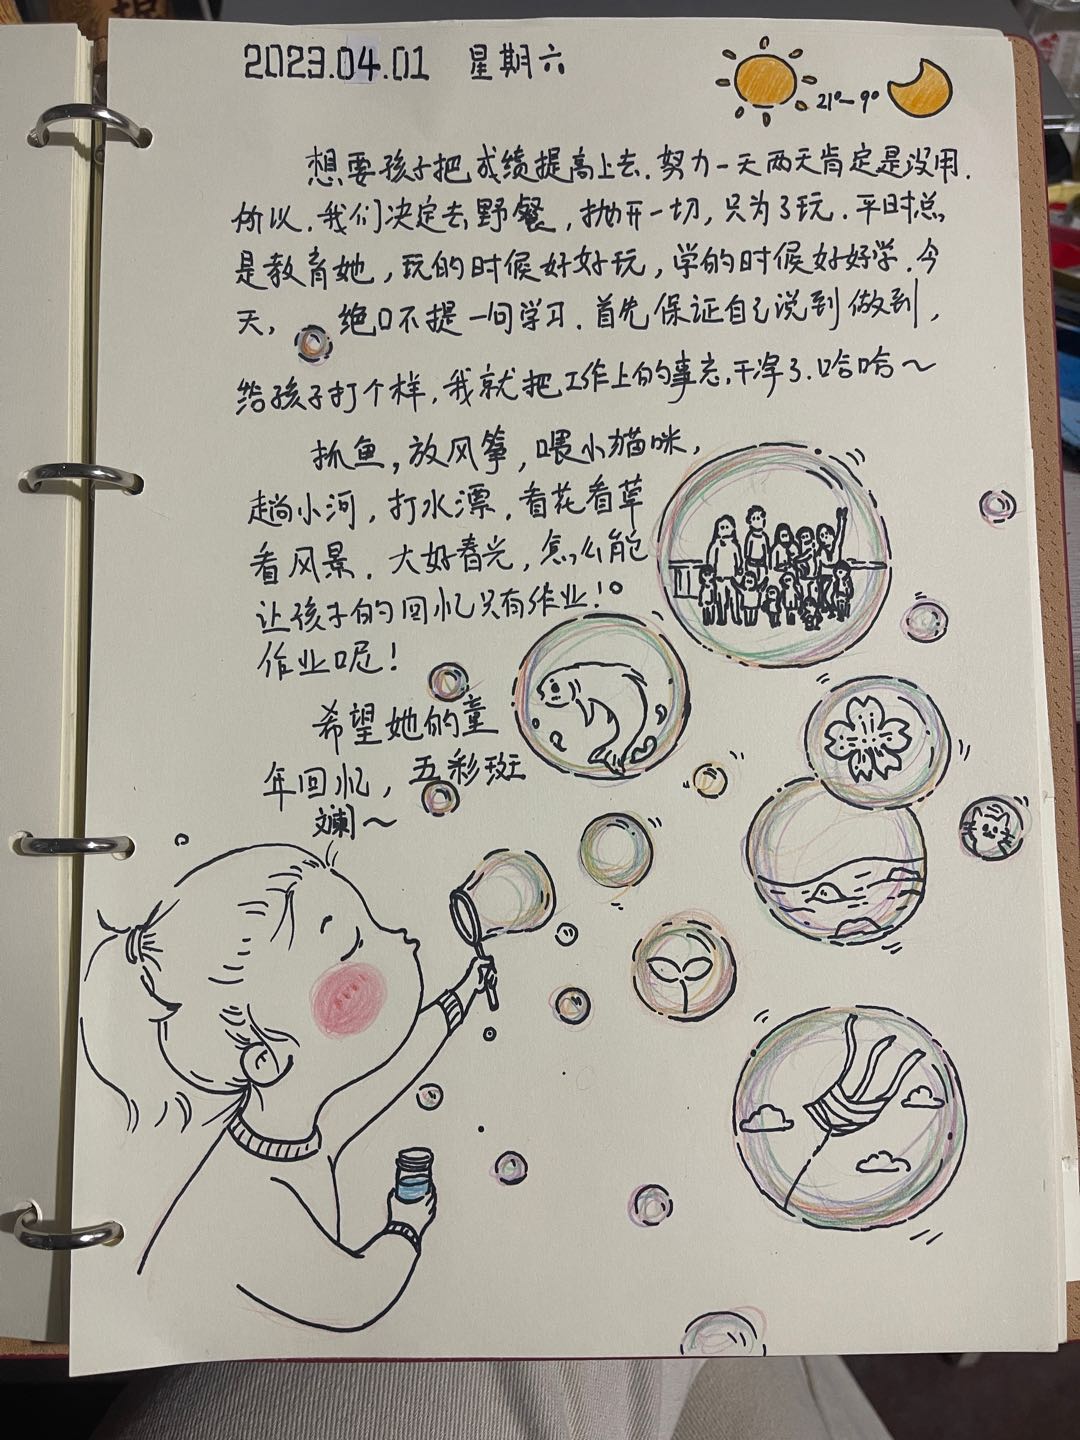 2023.04.01 星期六
21°~9°
想要孩子把成绩提高上去.努力一天两天肯定是没用.
所以.我们决定去野餐,抛开一切,只为了玩.平时总
是教育她,玩的时候好好玩,学的时候好好学.今
天,绝口不提一问学习.首先保证自己说到做到,
给孩子打个样,我就把工作上的事忘干净了.哈哈~
抓鱼,放风筝,喂小猫咪,
趟小河,打水漂.看花看草
看风景.大好春光,怎么能
让孩子的回忆只有作业!。
作业呢!
希望她的童
年回忆,五彩斑
斓~